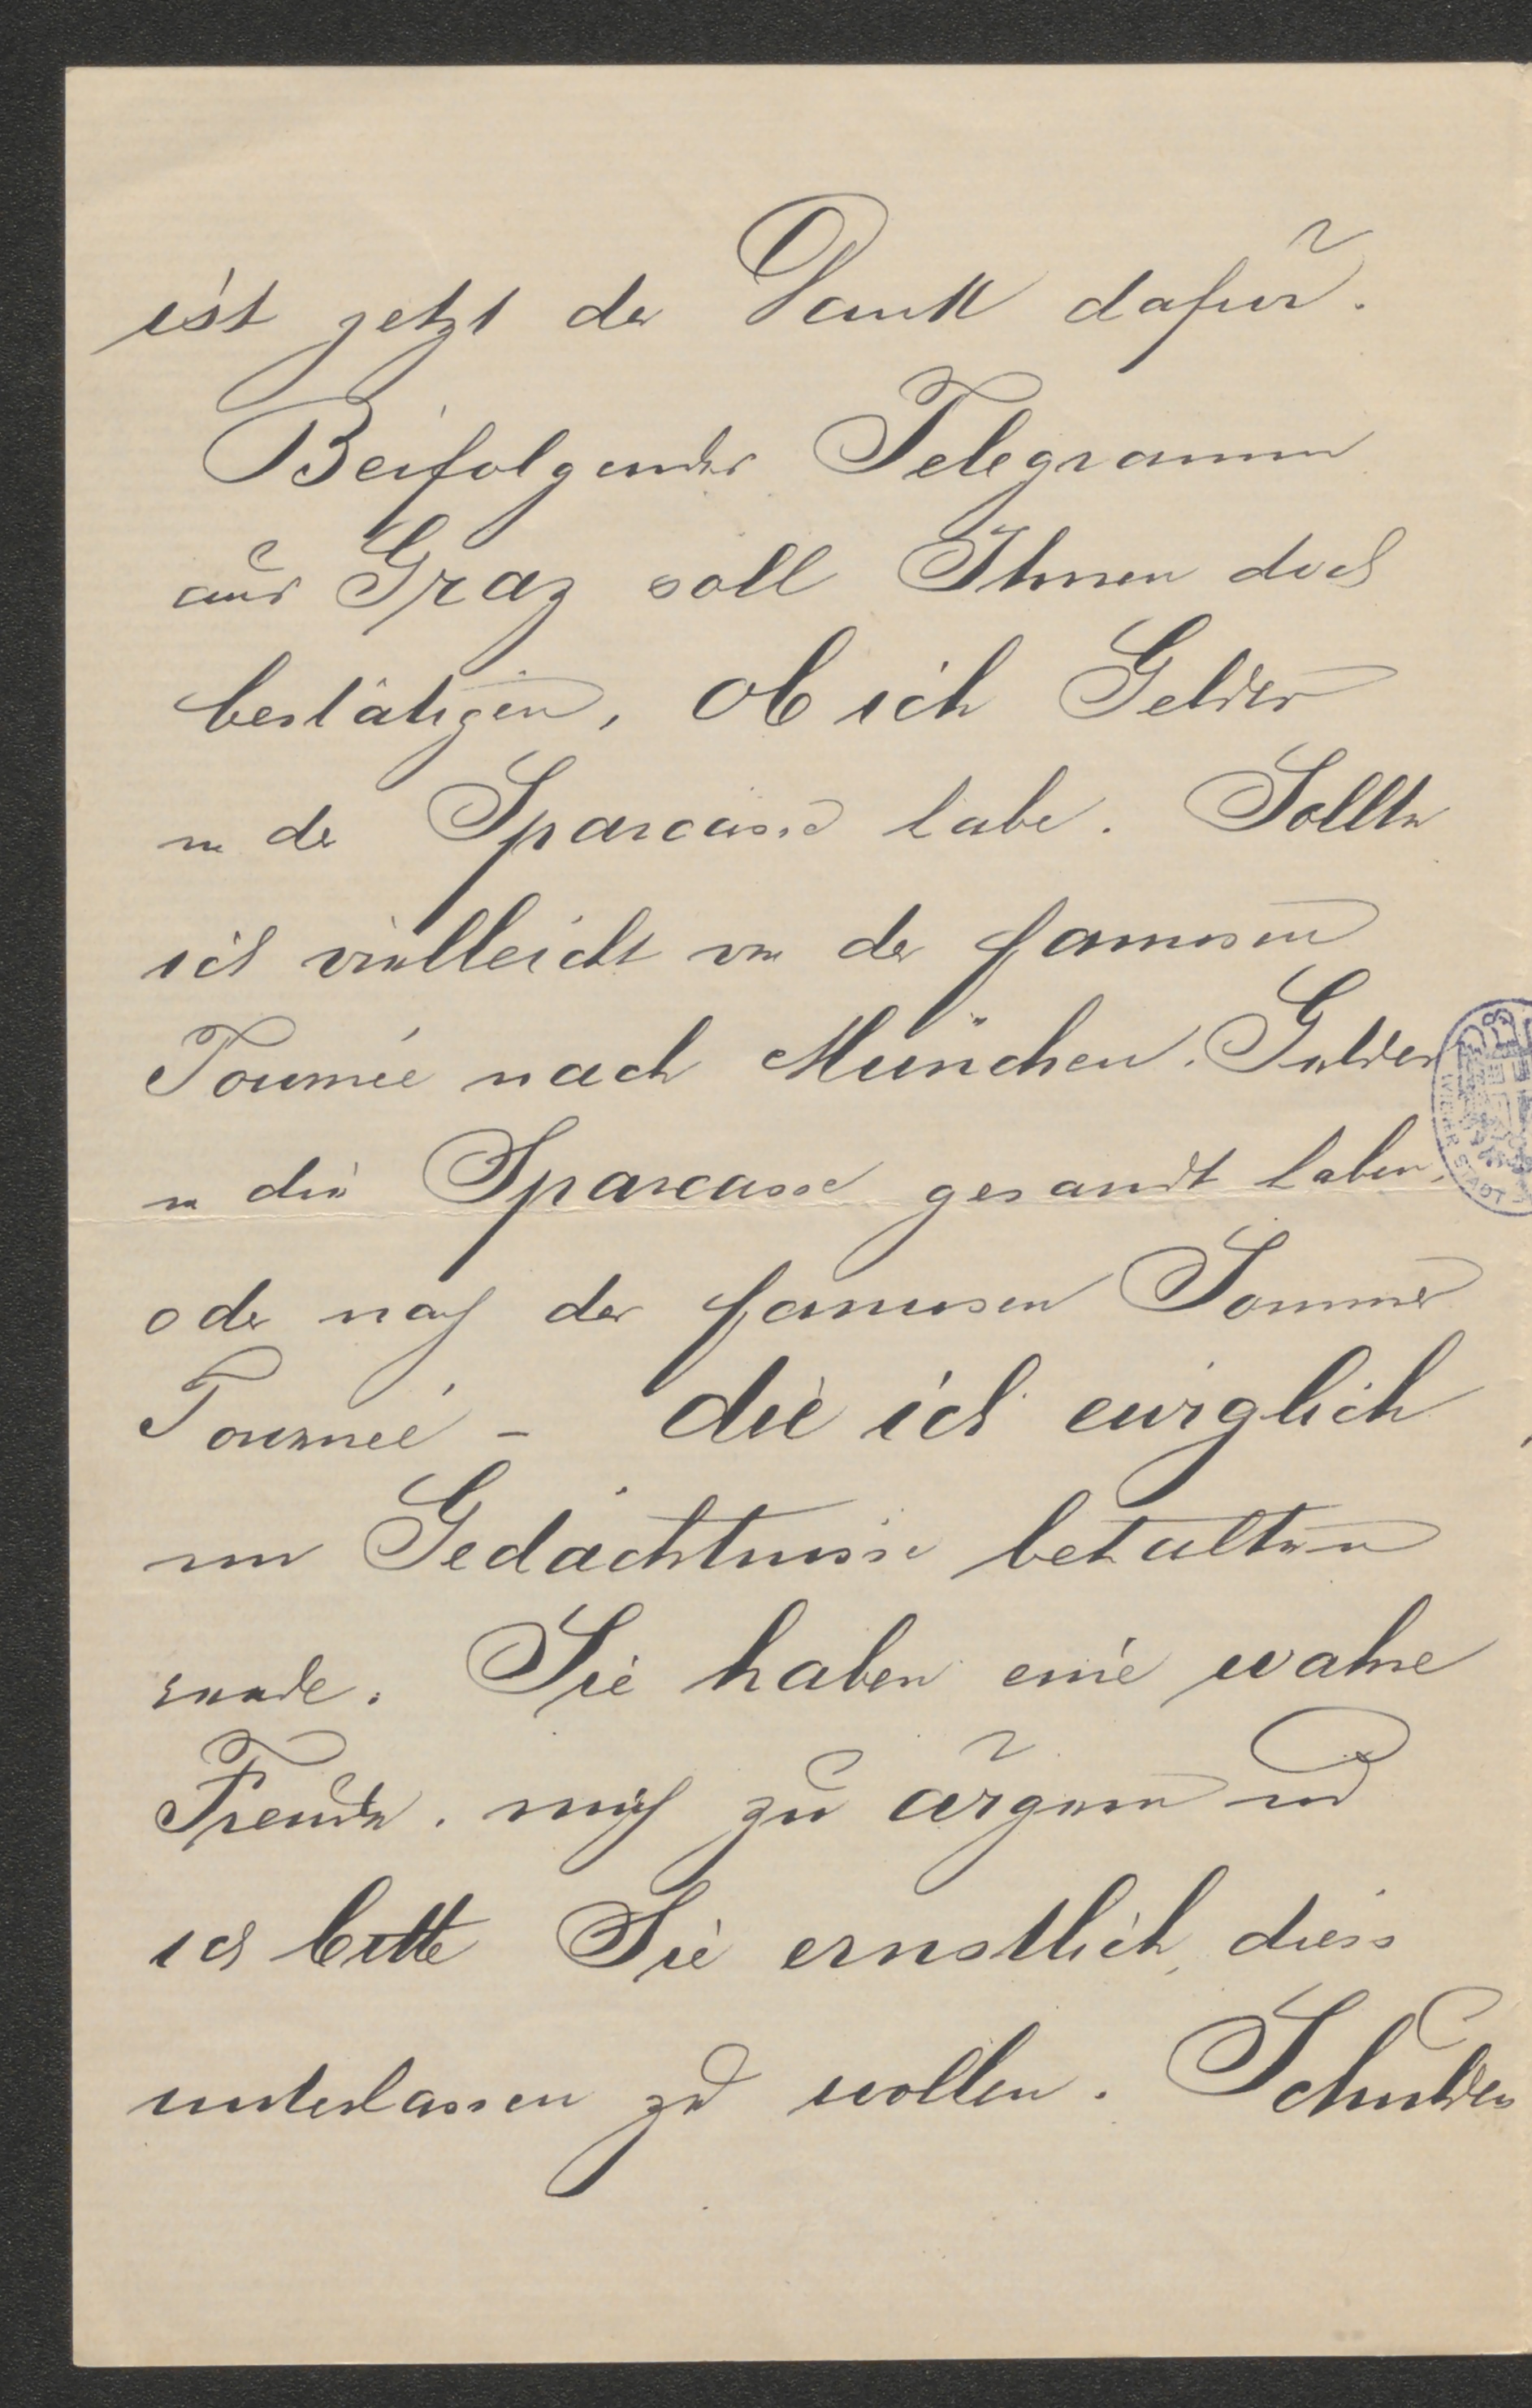 ist jetzt der Dank dafür.
Beifolgendes Telegramm
aus Graz soll Ihnen doch
bestätigen, ob ich Gelder
in der Sparcasse habe. Sollte
ich vielleicht von der famosen
Tournée nach München. Gelder
in die Sparcasse gesandt haben,
oder nach der famosen Sommer
Tournée - die ich ewiglich
im Gedächtnisse behalten
werde. Sie haben eine wahre
Freude, mich zu ärgern und
ich bitte Sie ernstlich, diess
unterlassen zu wollen. Schulden
WIENER STADT